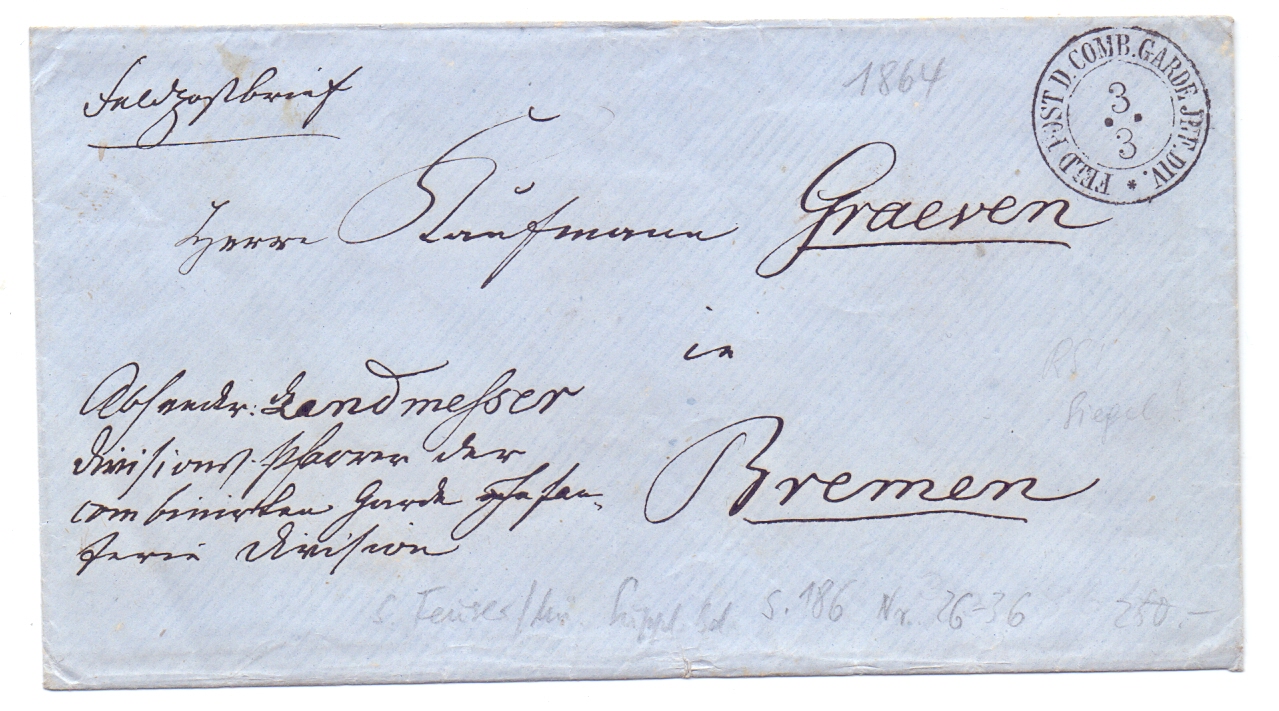 Feldpostbrief
1864
FELD POST D. COMB. GARDE. INF. DIV. *
3
3
Herrn Kaufmann Graeven
in
Bremen
Absender: Landmesser
Divisions-Pfarrer der
combinirten Garde Infan-
terie Division
Siegel
s. Feuser/Mü. Suppl. Bd. S. 186 Nr. 26-36
250.-